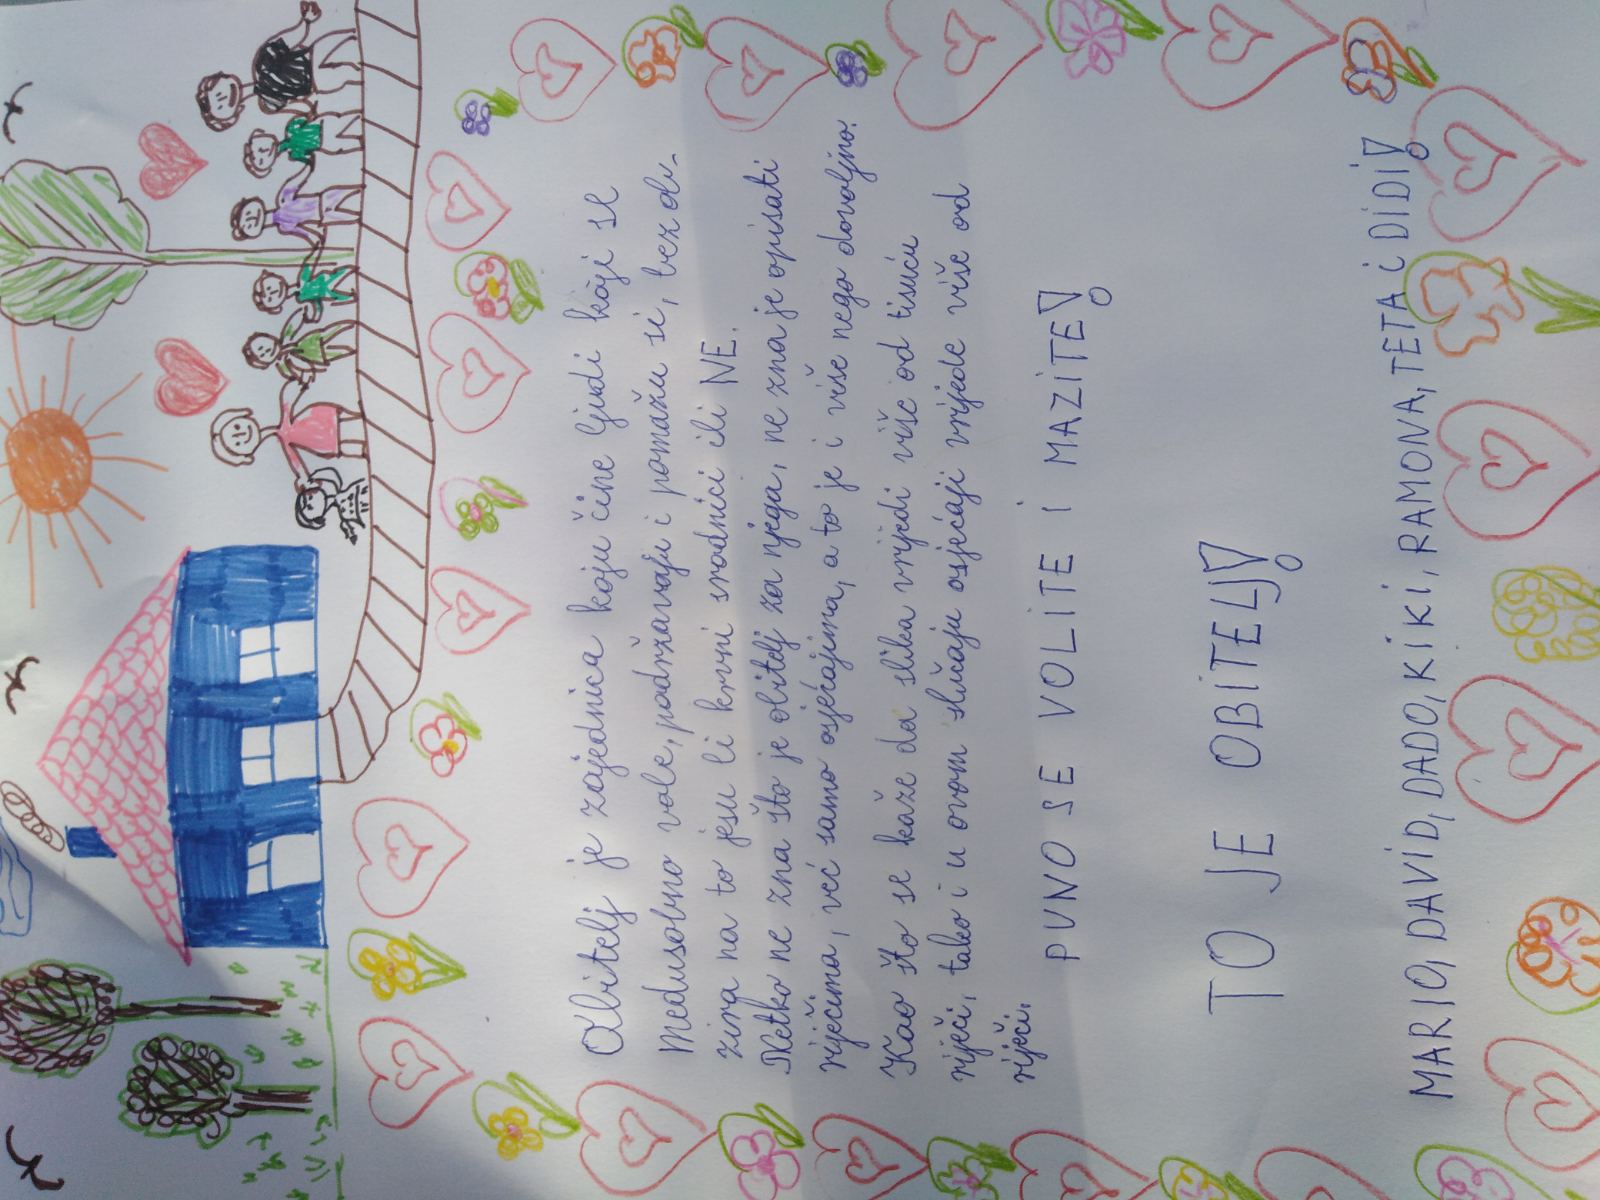 Obitelj je zajednica koju čine ljudi koji se
međusobno vole, podržavaju i pomažu si, bez ob-
zira na to jesu li krvni srodnici ili NE.
Netko ne zna što je obitelj za njega, ne zna je opisati
riječima, već samo osjećajima, a to je i više nego dovoljno.
Kao što se kaže da slika vrijedi više od tisuću
riječi, tako i u ovom slučaju osjećaji vrijede više od
riječi.
PUNO SE VOLITE I MAZITE!
TO JE OBITELJ!
MARIO, DAVID, DADO, KIKI, RAMONA, TETA i DIDI!